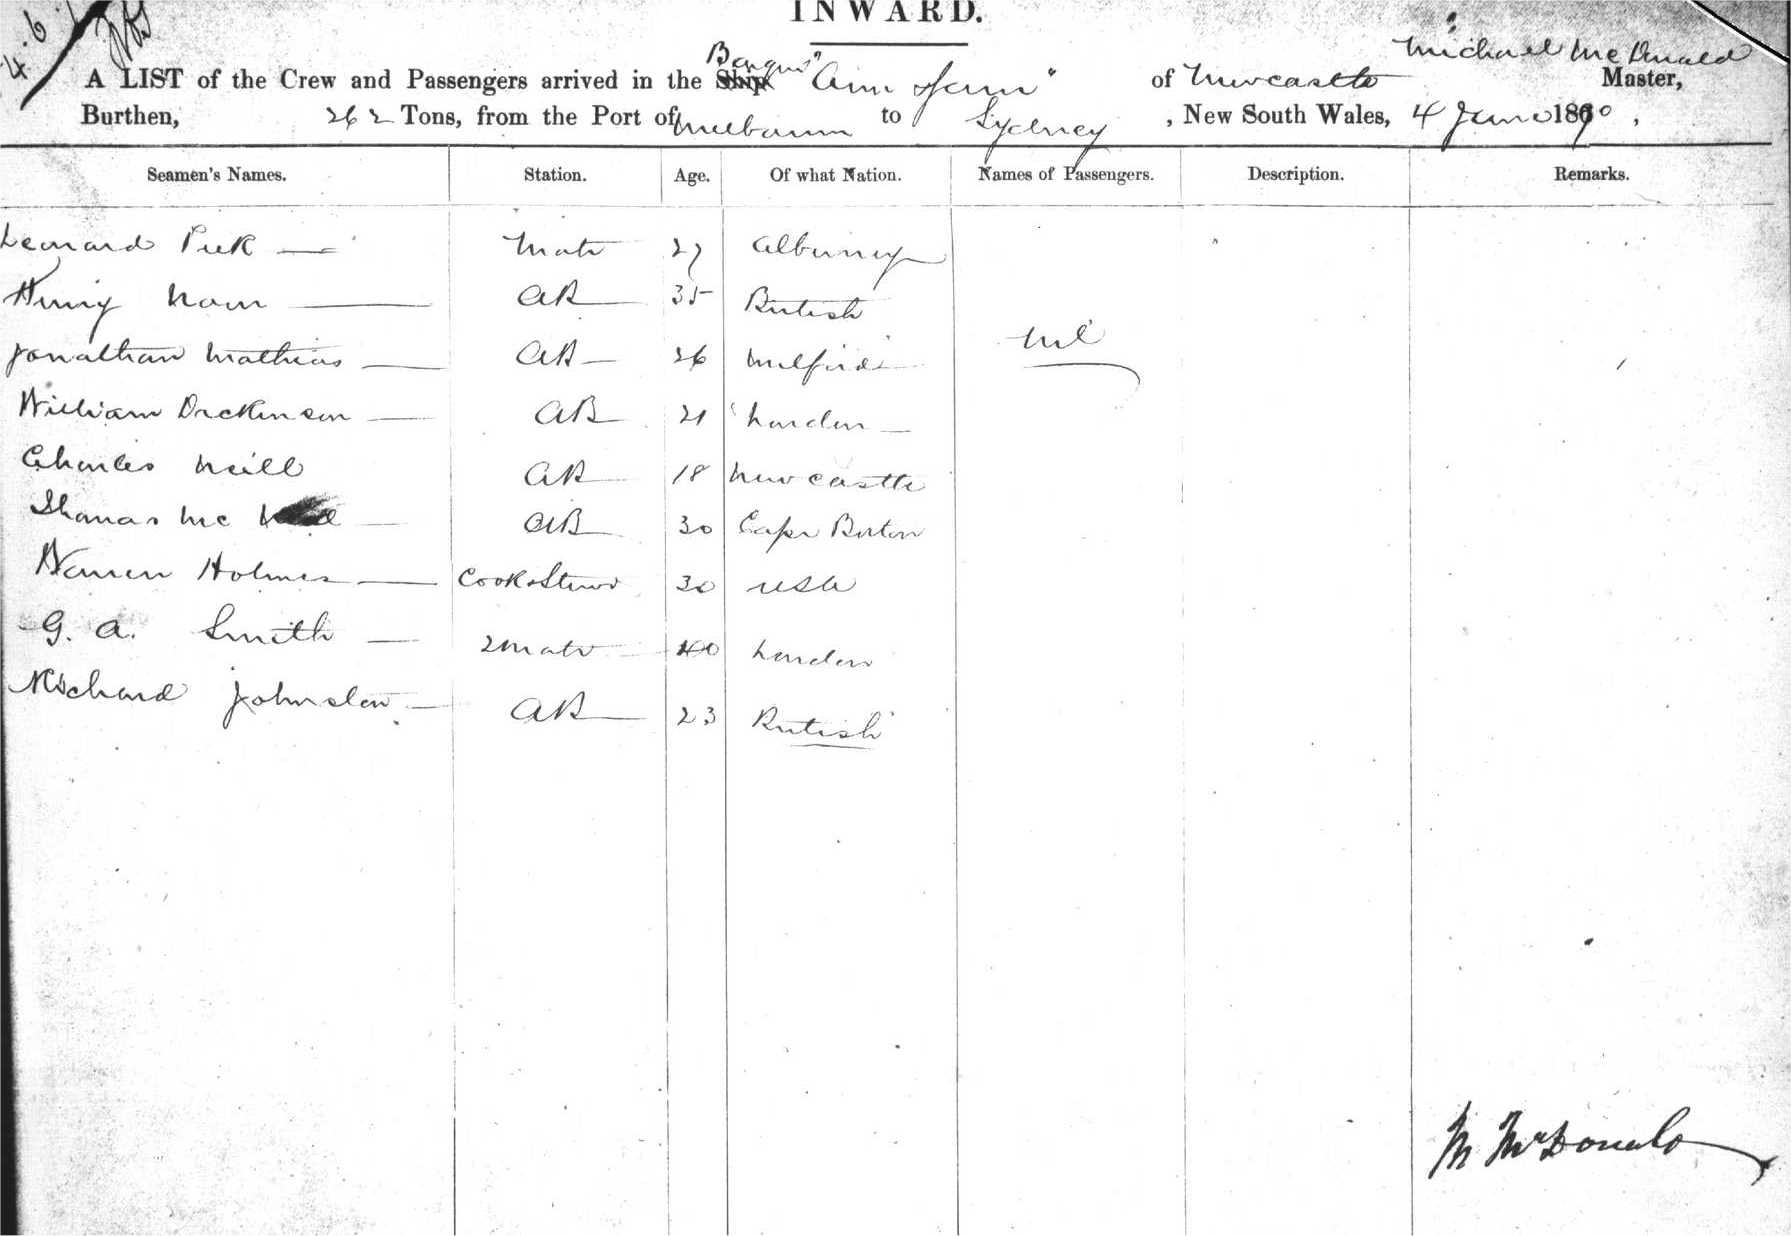 4.6.
INWARD.
Michael McDonald
Barque
A LIST of the Crew and Passengers arrived in the Ship "Ann Jane" of Newcastle Master,
Burthen, 262 Tons, from the Port of Melbourn to Sydney, New South Wales, 4 June 1870,
Seamen's Names. Station. Age. Of what Nation. Names of Passengers. Description. Remarks.
Leonard Peek — Mate 27 Alderney
Henry AB 35 British
Nil
Jonathan Mathias — AB — 26 Milford
William Dickinson — AB 21 London —
Charles Neill AB 18 Newcastle
Thomas Mc — AB 30 Cape Breton
Warren Holmes — Cook & Steward 30 USA
G. A. Smith — 2 Mate 40 London
Richard Johnston — AB 23 British
M McDonald